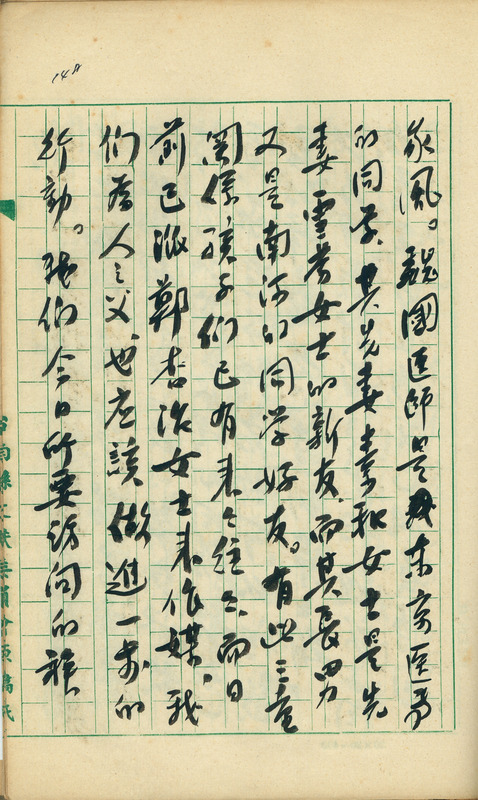 148
家風。魏國医師是我東京医專
的同学、其先妻素和女士是先
妻雪芬女士的新友、而其長男
又是南河的同学好友。有此三重
関係、孩子們已有来々往々、而日
前已派鄭杏治女士来作媒、我
們為人之父、也应該做進一步的
行動。我們今日所要訪问的族